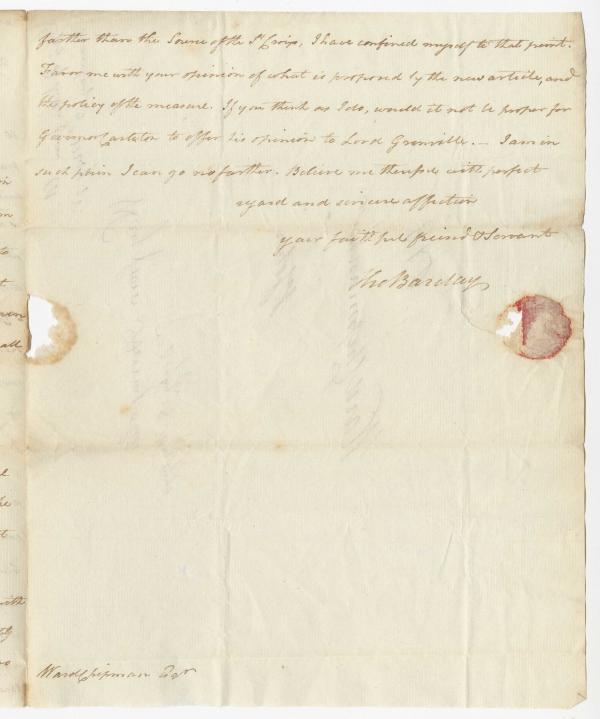 farther than the Source of the St Croix, I have confined myself to that point.
Favor me with your opinion of what is proposed by the new article, and
the policy of the measure. If you think as I do, would it not be proper for
Governor Carleton to offer his opinion to Lord Grenville. — I am in
such pain I can go no farther. Believe me therefore with perfect
regard and sincere affection
your faithful friend & Servant
Tho Barclay
all
with
Ward Chipman Esqr